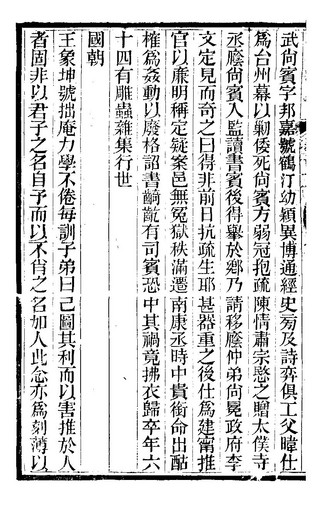 武尚賓字邦嘉號鶴汀幼穎異博通經史旁及詩弈俱工父暐仕
為台州幕以剿倭死尚賓方弱冠抱疏陳情肅宗愍之贈太僕寺
丞廕尚賓入監讀書賓後得舉於鄉乃請移廕仲弟尚冕政府李
文定見而奇之曰得非前日抗疏生耶甚器重之後仕為建甯推
官以廉明稱定疑案邑無冤獄秩滿遷南康丞時中貴銜命出酤
榷為姦動以廢格詔書齮齕有司賓恐中其禍竟拂衣歸卒年六
十四有雕蟲雜集行世
國朝
王象坤號拙庵力學不倦每訓子弟曰己圖其利而以害推於人
者固非以君子之名自予而以不肖之名加人此念亦為刻薄以